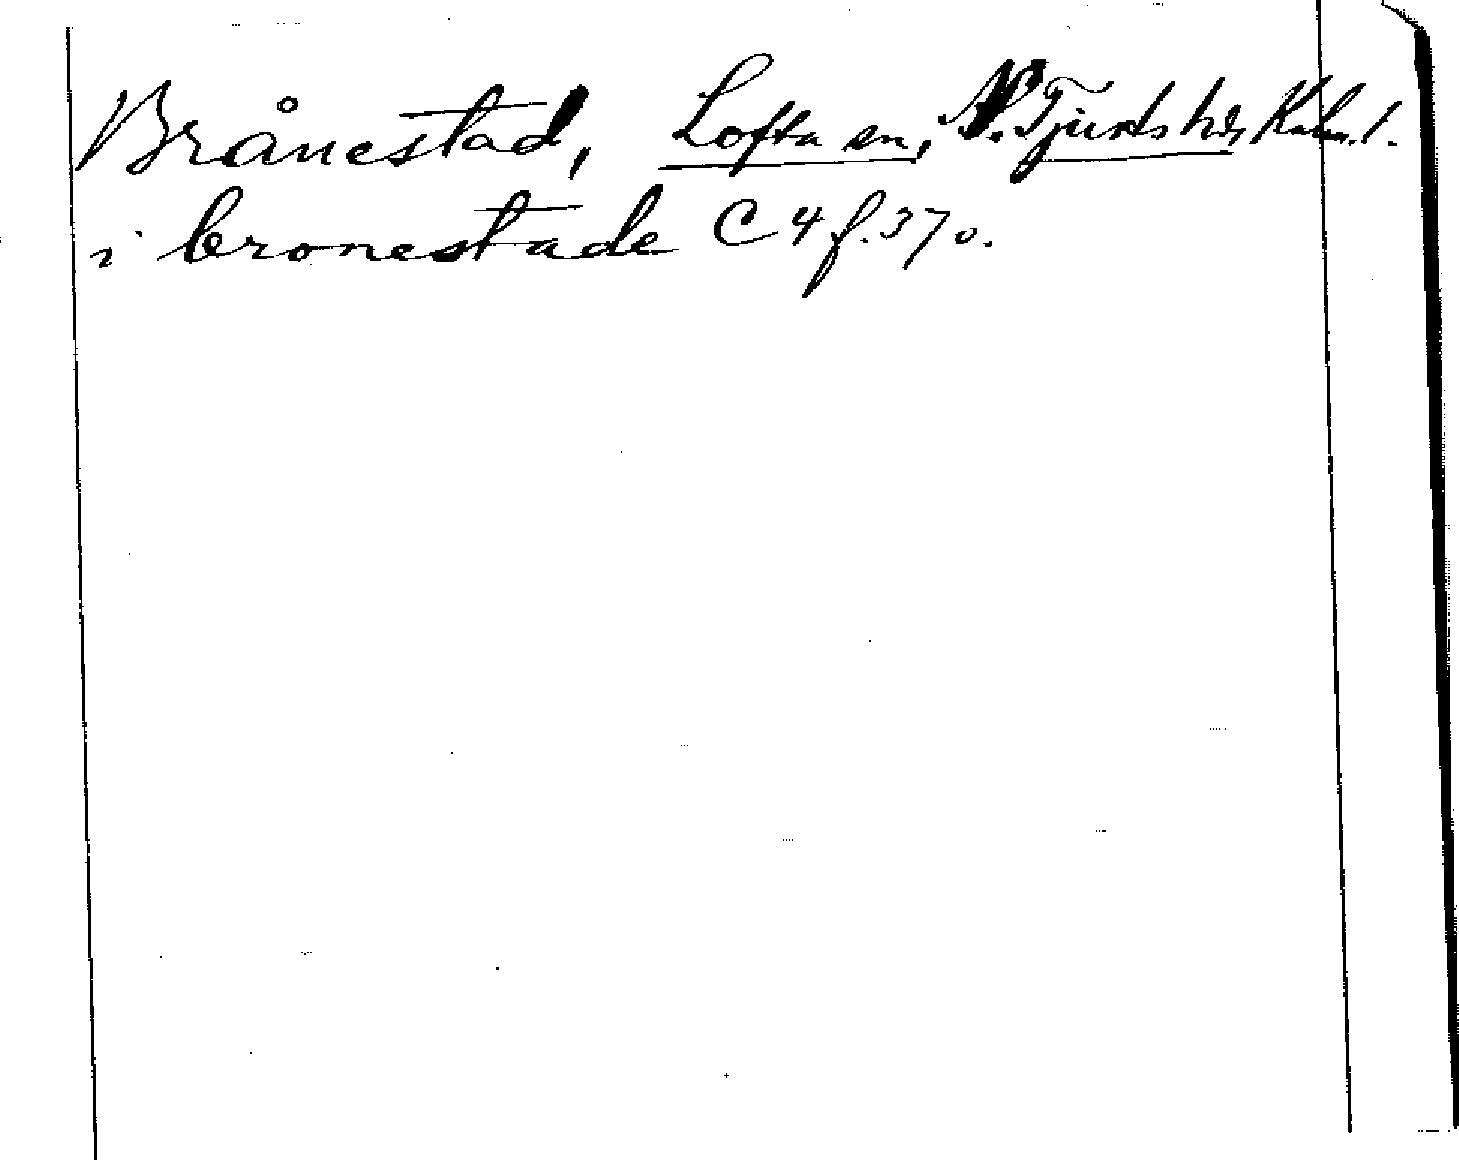 Brånestad, Lofta sn, N. Tjusts hd, Kalm. l.
i bronestade C 4 f. 37 v.